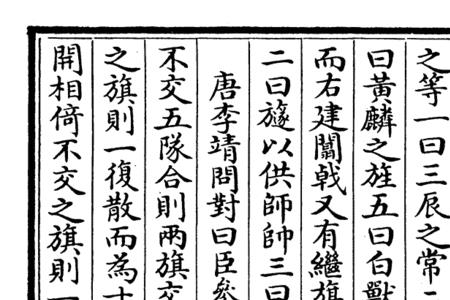 之等一曰三辰之常二
曰黃麟之旌五曰白獸
而右建闟戟又有繼旗
二曰旞以供師帥三曰
唐李靖問對曰臣參
不交五隊合則兩旗交
之旗則一復散而為十
開相倚不交之旗則一